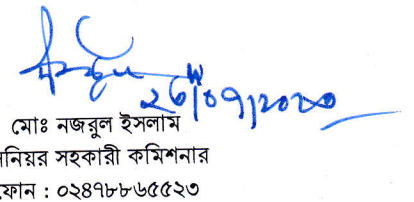 ২৬/০৭/২০২০
মোঃ নজরুল ইসলাম
নিয়র সহকারী কমিশনার
ফোন : ০২৪৭৮৮৬৫৫২৩